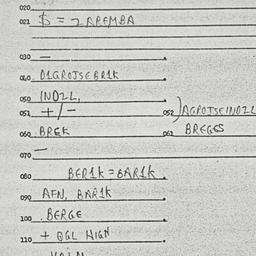 020
021 $ = 2 AREMBA
030 —
040 O1GROTSEBR1K
050 INO2L,
051 + / - 052 ) AGROTSEINO2L
060 BREK 061 BREGES
070 —
080 BER1K = BAR1K
090 AFN, BAR1K
100 BERGE
110 + OGL HIGN